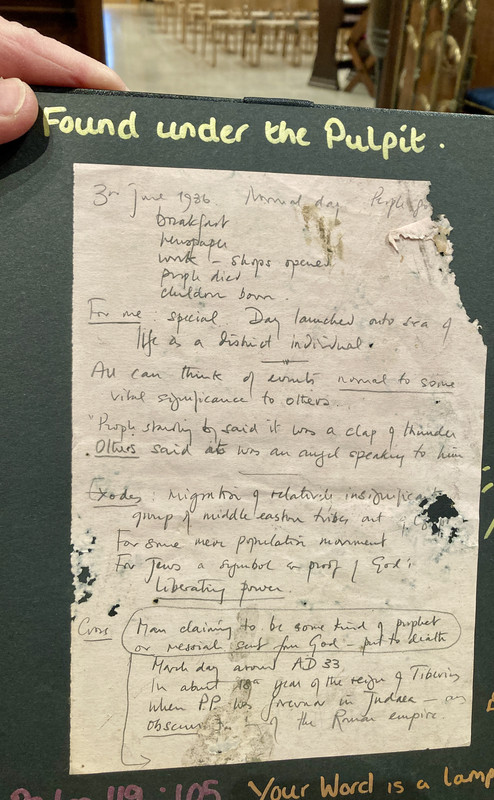 Found under the Pulpit.
3rd June 1936. Normal day People
breakfast
newspaper
work – shops opened
people died
children born.
For me special. Day launched onto sea of
life as a distinct individual.
All can think of events normal to some
vital significance to others...
"People standing by said it was a clap of thunder
Others said it was an angel speaking to him
Exodus: Migration of relatively insignificant
group of middle eastern tribes out of
For some mere population movement
For Jews a symbol or proof of God's
liberating power.
Cross Man claiming to be some kind of prophet
or messiah sent from God – put to death
March day around AD 33
In about 18th year of the reign of Tiberius
When P.P. was in Judaea – an
obscure of the Roman empire.
119:105 Your Word is a lamp